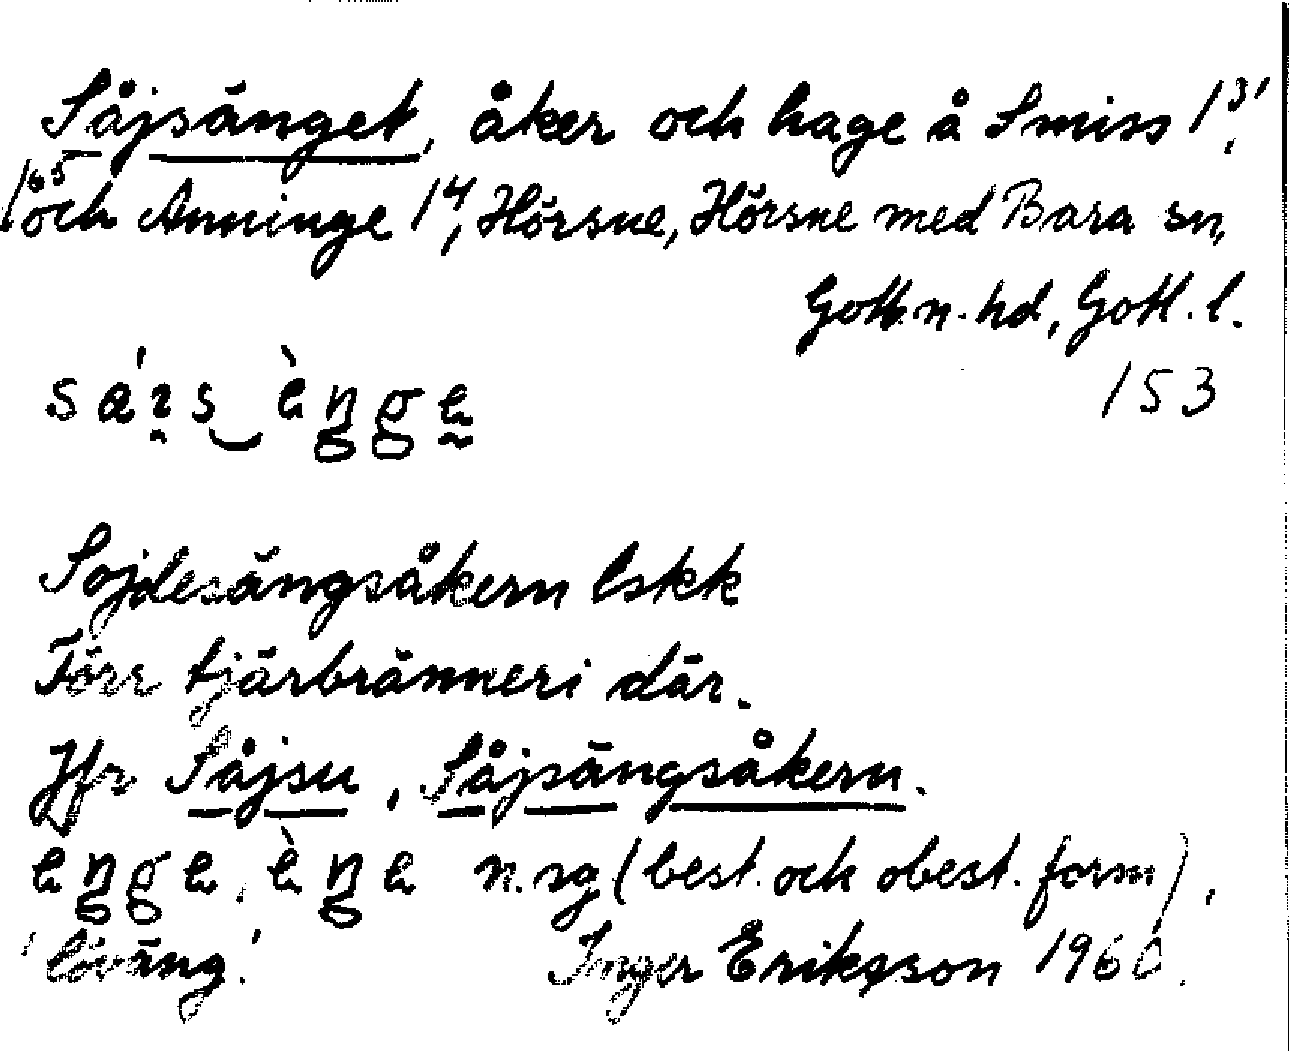 Såjsänget, åker och hage å Smiss 1³,
1⁶⁵ och Anninge 1⁴, Hörsne, Hörsne med Bara sn,
Gotl. n. hd, Gotl. l.
153
Sojdesängsåkern lskk
Förr tjärbränneri där.
Jfr Såjsu, Såjsängsåkern.
n. sg (best. och obest. form),
'löväng.' Inger Eriksson 1960.